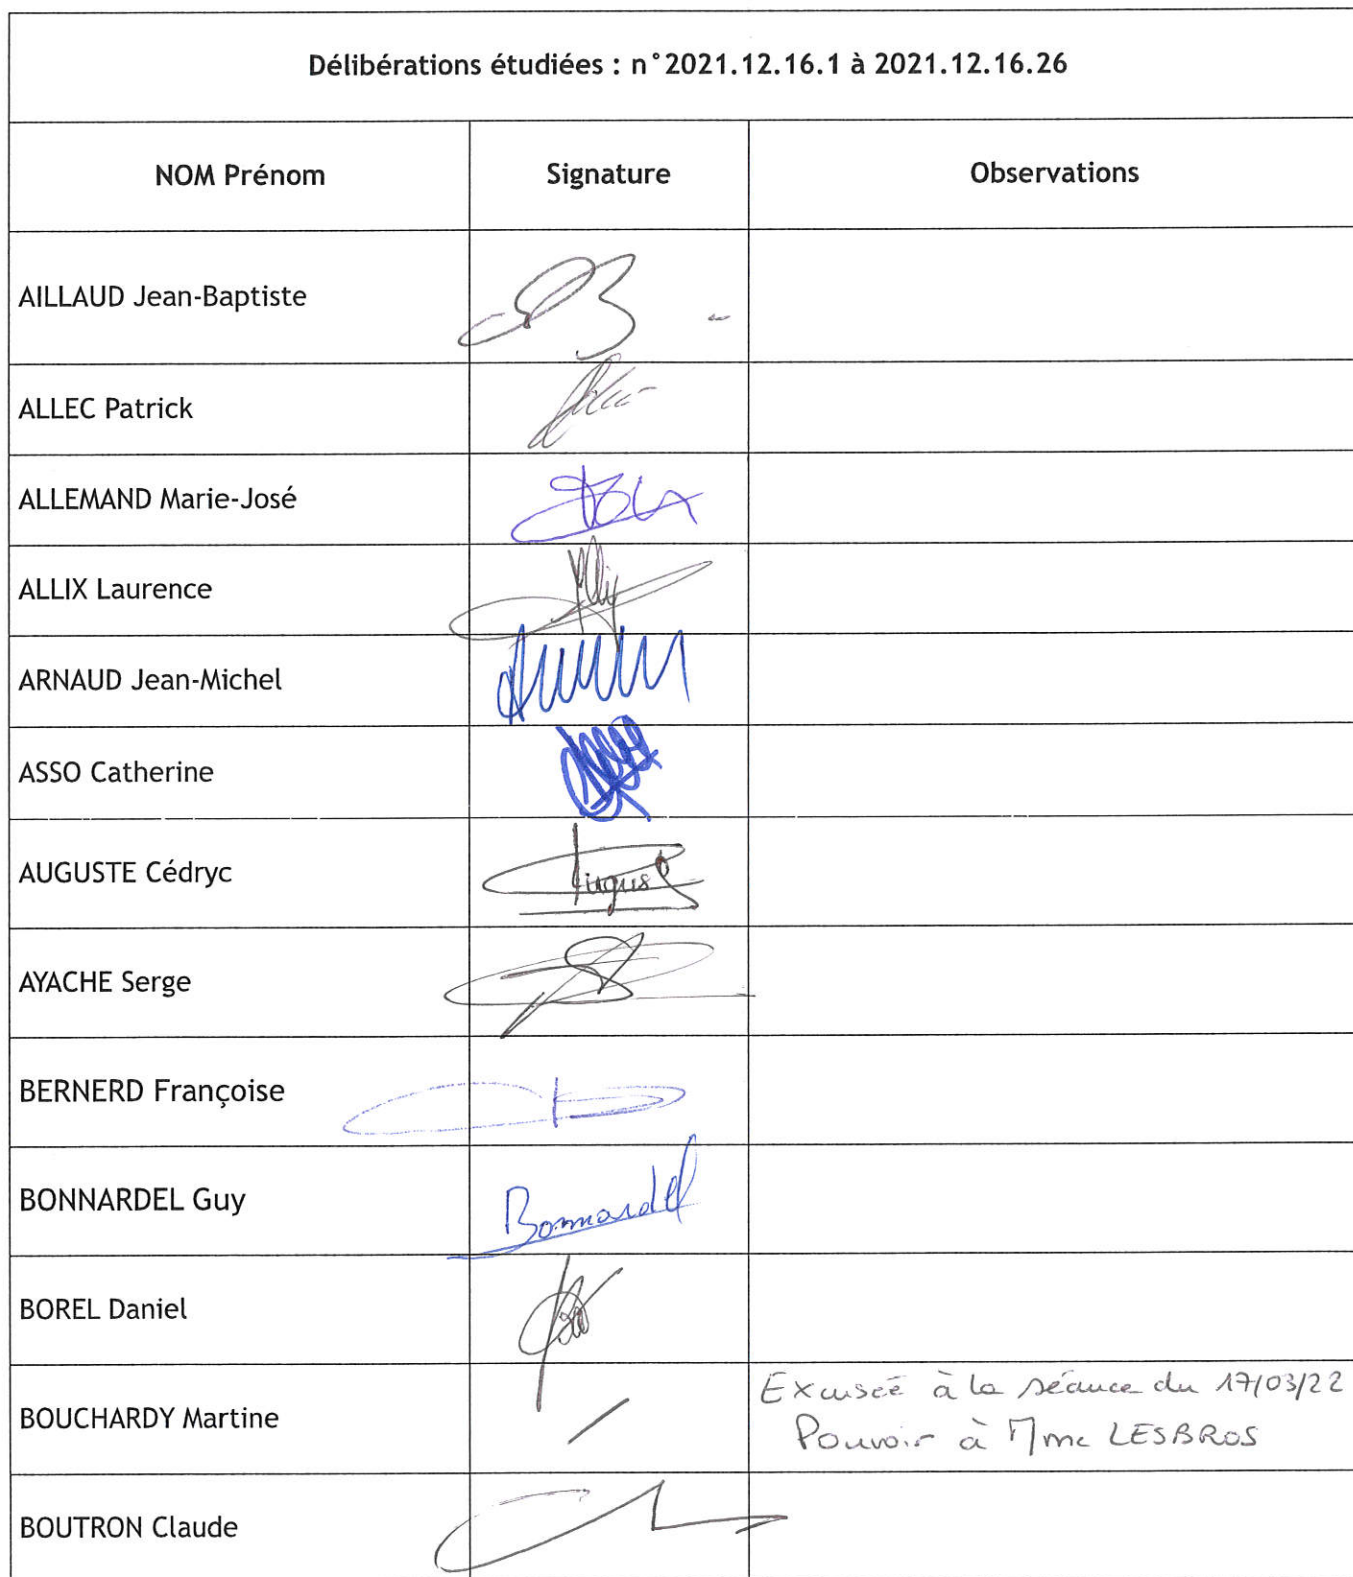 Délibérations étudiées : n°2021.12.16.1 à 2021.12.16.26
NOM Prénom Signature Observations
AILLAUD Jean-Baptiste
ALLEC Patrick
ALLEMAND Marie-José
ALLIX Laurence
ARNAUD Jean-Michel
ASSO Catherine
AUGUSTE Cédryc
AYACHE Serge
BERNERD Françoise
BONNARDEL Guy Bonnardel
BOREL Daniel
BOUCHARDY Martine
Excusée à la séance du 17/03/22
Pouvoir à Mme LESBROS
BOUTRON Claude